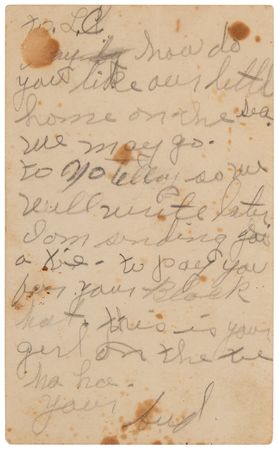 to L.C.
how do
you like our little
home on the sea
we may go.
to so we
will write later
I am sending you
a tie - to pay you
for your Black
hat. this is your
girl on the tie
ha ha.
your bud